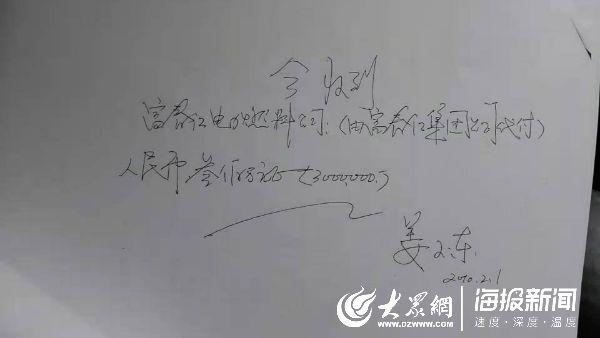 今收到
富春江电力燃料公司:(由富春江集团公司代付)
人民币叁佰万元(3000,000.)
姜 东
2010.2.1
大众網 海报新闻
WWW.DZWWW.COM 速度·深度·温度